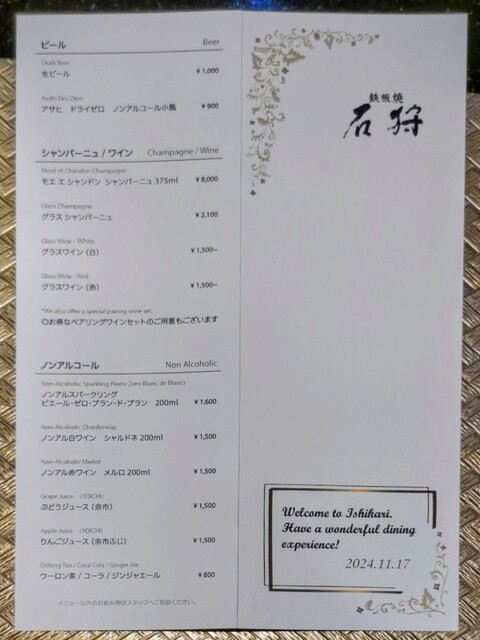 ビール Beer
Draft Beer
生ビール ¥1,000
Asahi Dry Zero
アサヒ ドライゼロ ノンアルコール小瓶 ¥900
シャンパーニュ / ワイン Champagne / Wine
Moet et Chandon Champagne
モエ エ シャンドン シャンパーニュ 375ml ¥8,000
Glass Champagne
グラス シャンパーニュ ¥2,100
Glass Wine - White
グラスワイン（白） ¥1,500~
Glass Wine - Red
グラスワイン（赤） ¥1,500~
*We also offer a special pairing wine set.
◎お得なペアリングワインセットのご用意もございます
ノンアルコール Non Alcoholic
Non-Alcoholic Sparkling Pierre Zero Blanc de Blancs
ノンアルスパークリング
ピエール・ゼロ・ブラン・ド・ブラン 200ml ¥1,600
Non-Alcoholic Chardonnay
ノンアル白ワイン シャルドネ 200ml ¥1,500
Non-Alcoholic Merlot
ノンアル赤ワイン メルロ 200ml ¥1,500
Grape Juice (YOICHI)
ぶどうジュース（余市） ¥1,500
Apple Juice (YOICHI)
りんごジュース（余市ふじ） ¥1,500
Oolong Tea / Coca Cola / Ginger Ale
ウーロン茶 / コーラ / ジンジャエール ¥800
メニュー以外のお飲み物はスタッフへご相談ください。
鉄板焼
石狩
Welcome to Ishikari.
Have a wonderful dining
experience!
2024.11.17